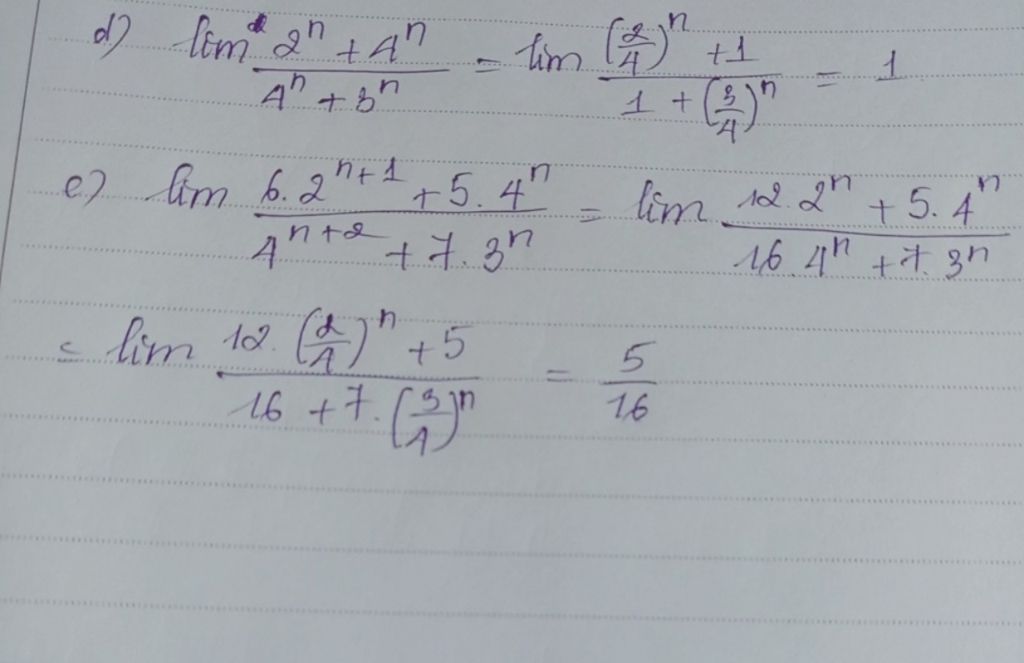 d) lim (2^n + 4^n)/(4^n + 3^n) = lim ((2/4)^n + 1)/(1 + (3/4)^n) = 1
e) lim (6.2^(n+1) + 5.4^n)/(4^(n+2) + 7.3^n) = lim (12.2^n + 5.4^n)/(16.4^n + 7.3^n)
= lim (12.(2/4)^n + 5)/(16 + 7.(3/4)^n) = 5/16